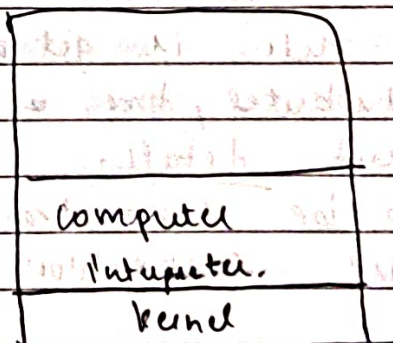 computer
interpreter.
kernel